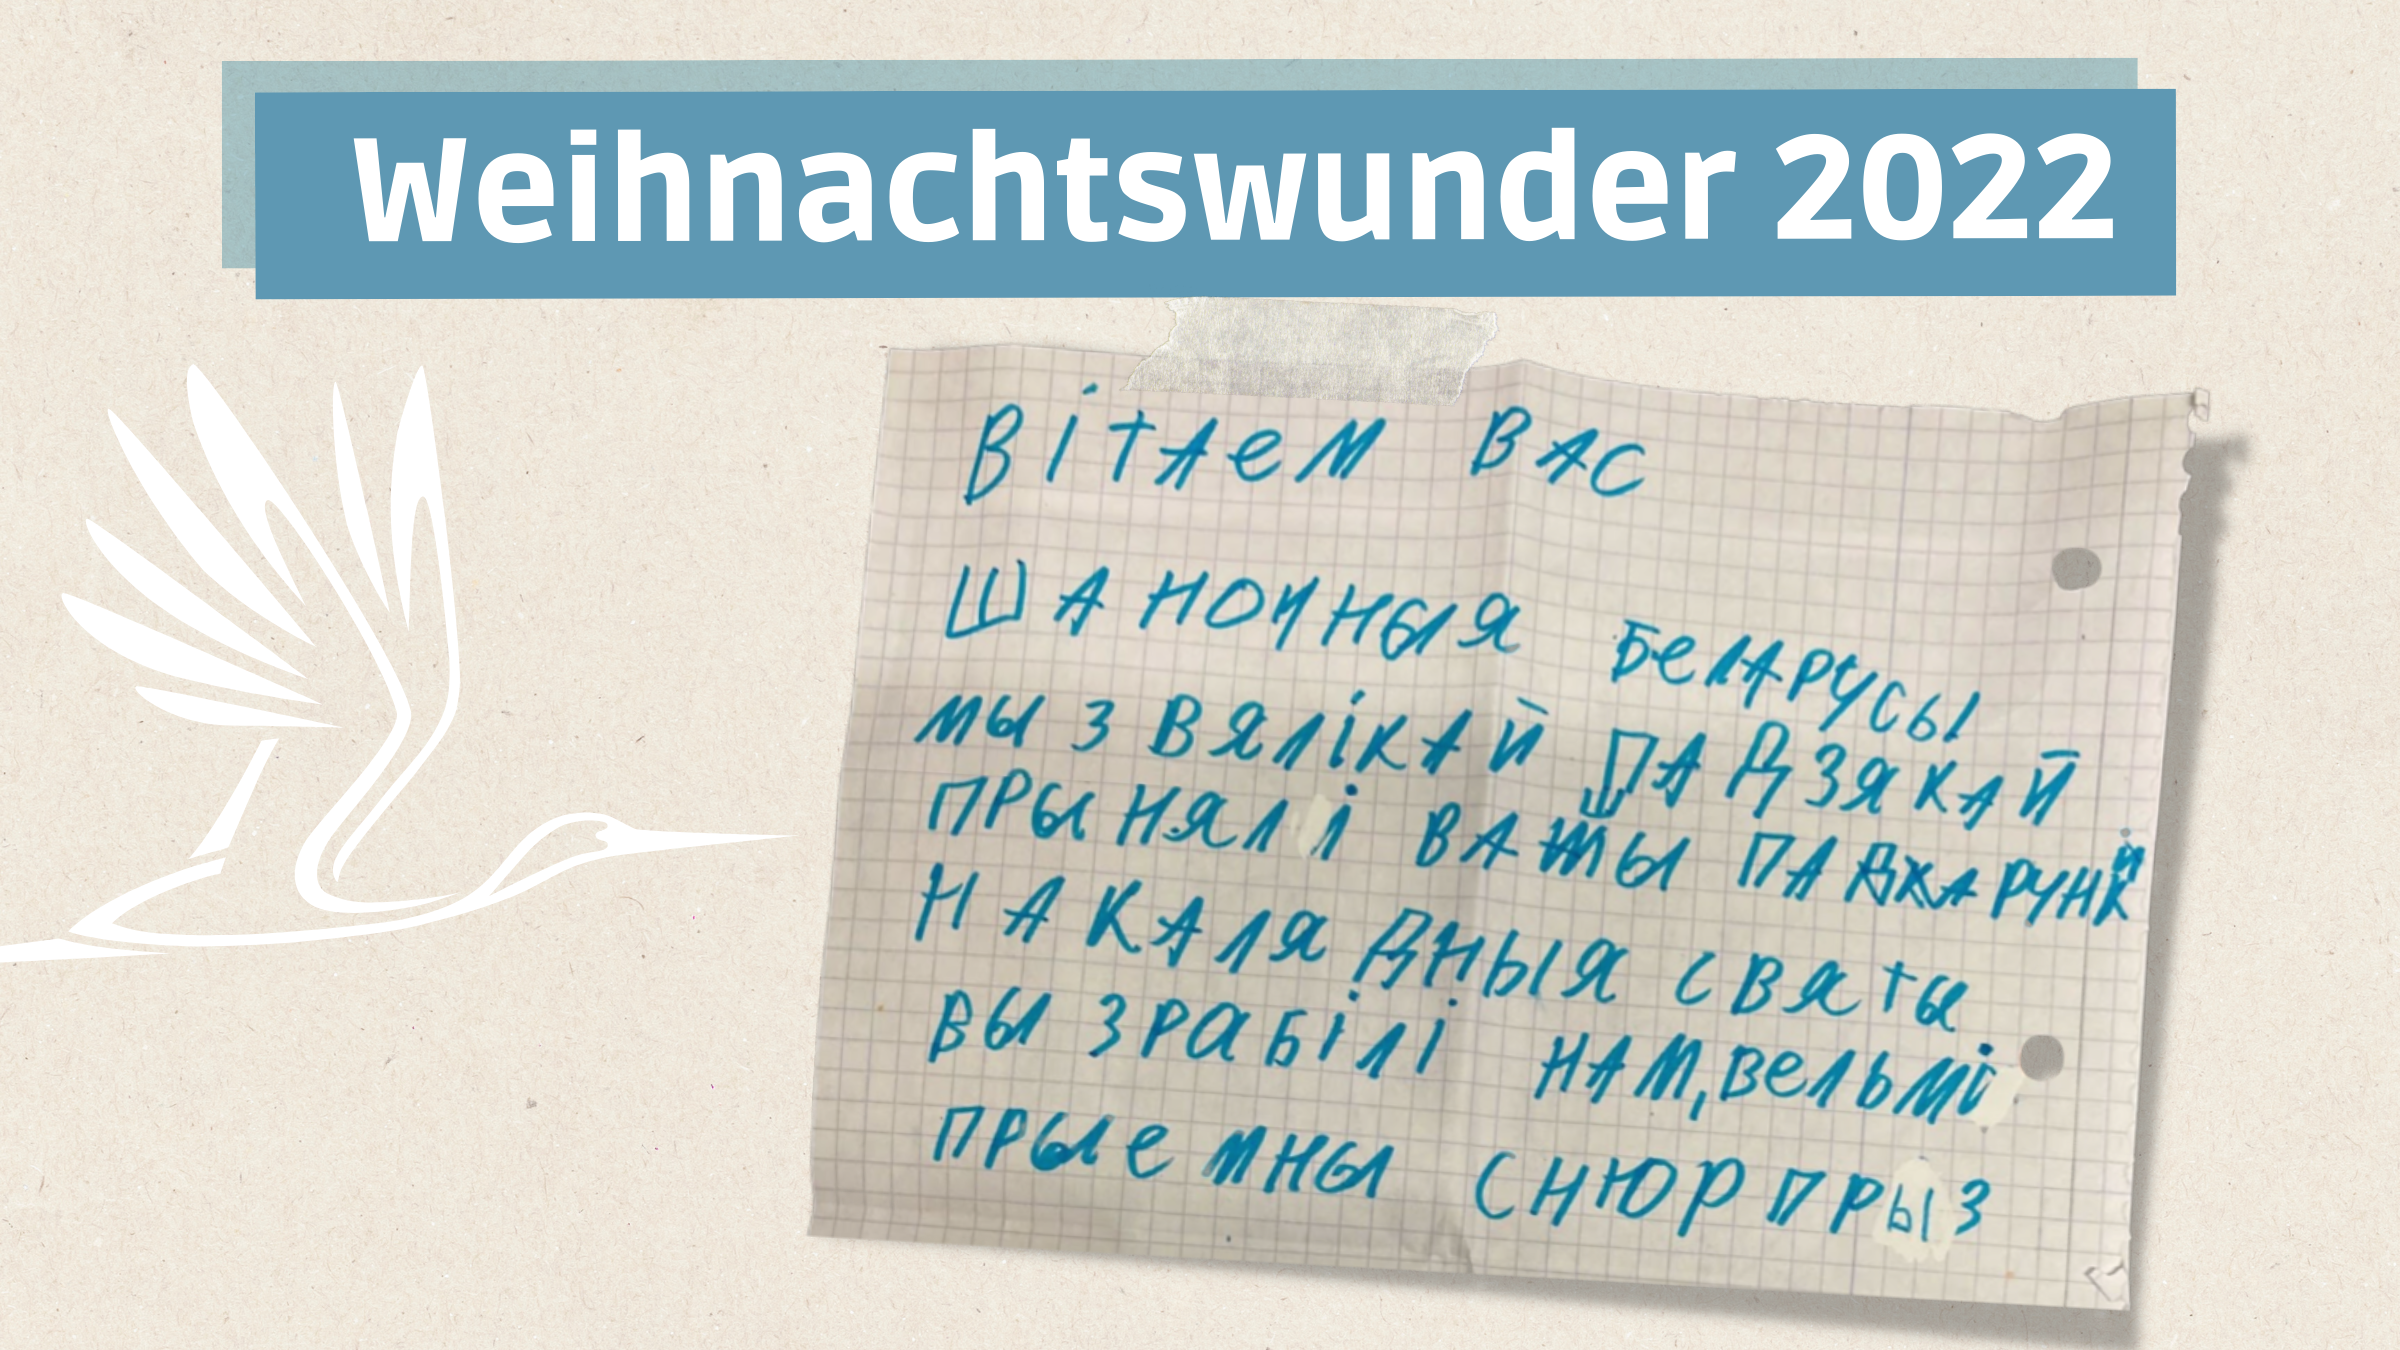 Weihnachtswunder 2022
Вітаем вас
Шаночныя Беларусы
мы з вялікай падзякай
прынялі вашы падарункі
на калядныя святы
вы зрабілі нам, вельмі
прыемны снюрпрыз